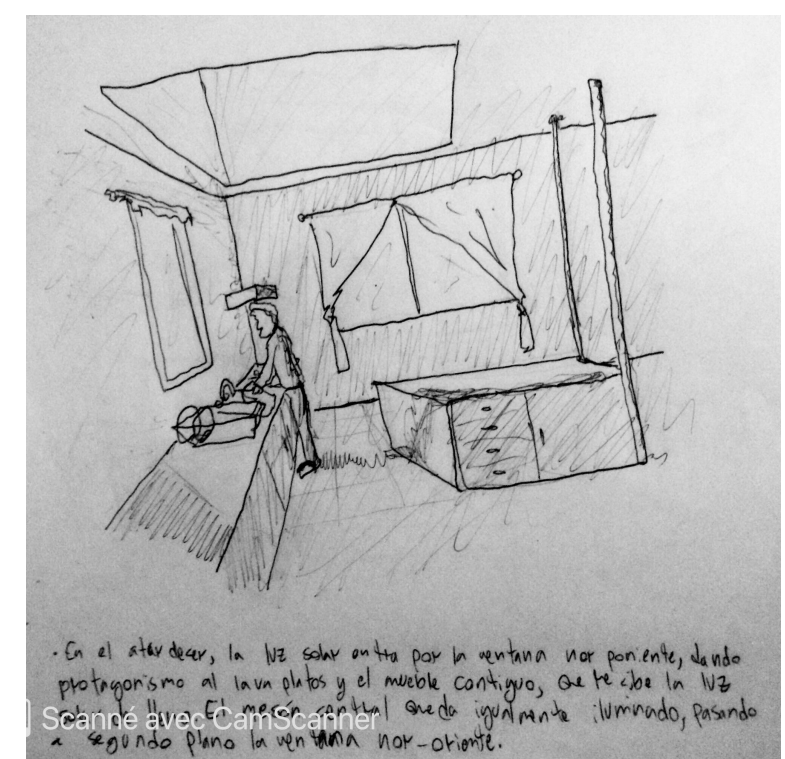 · En el atardecer, la luz solar entra por la ventana nor poniente, dando
protagonismo al lava platos y el mueble contiguo, que recibe la luz
El mesón central queda igualmente iluminado, pasando
a segundo plano la ventana nor-oriente.
Scanné avec CamScanner